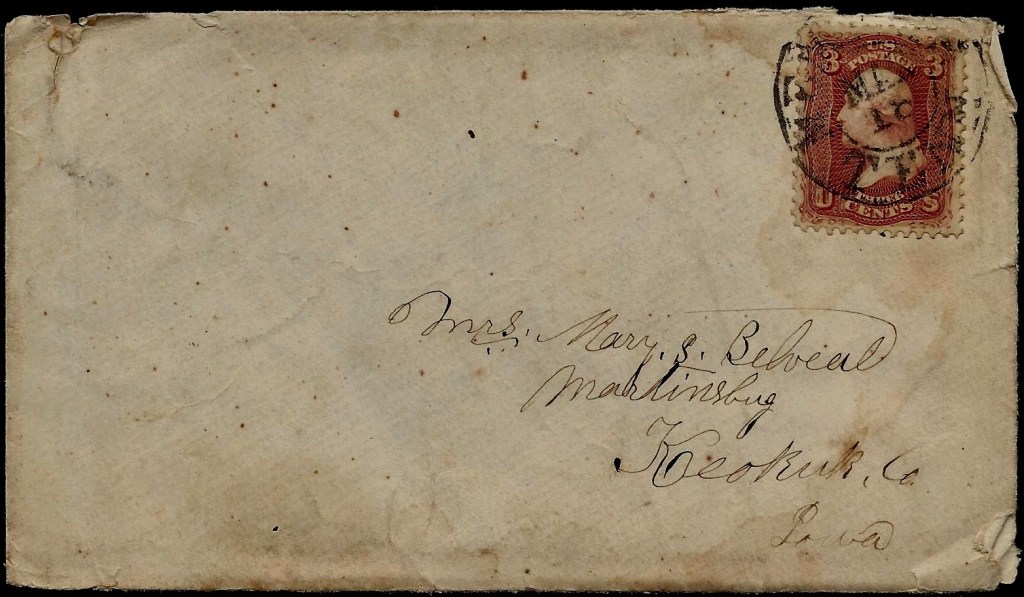 3 U.S. 3
POSTAGE
18
CENTS
Mrs. Mary. S. Belveal
Martinsbug
Keokuk, Co
Iowa